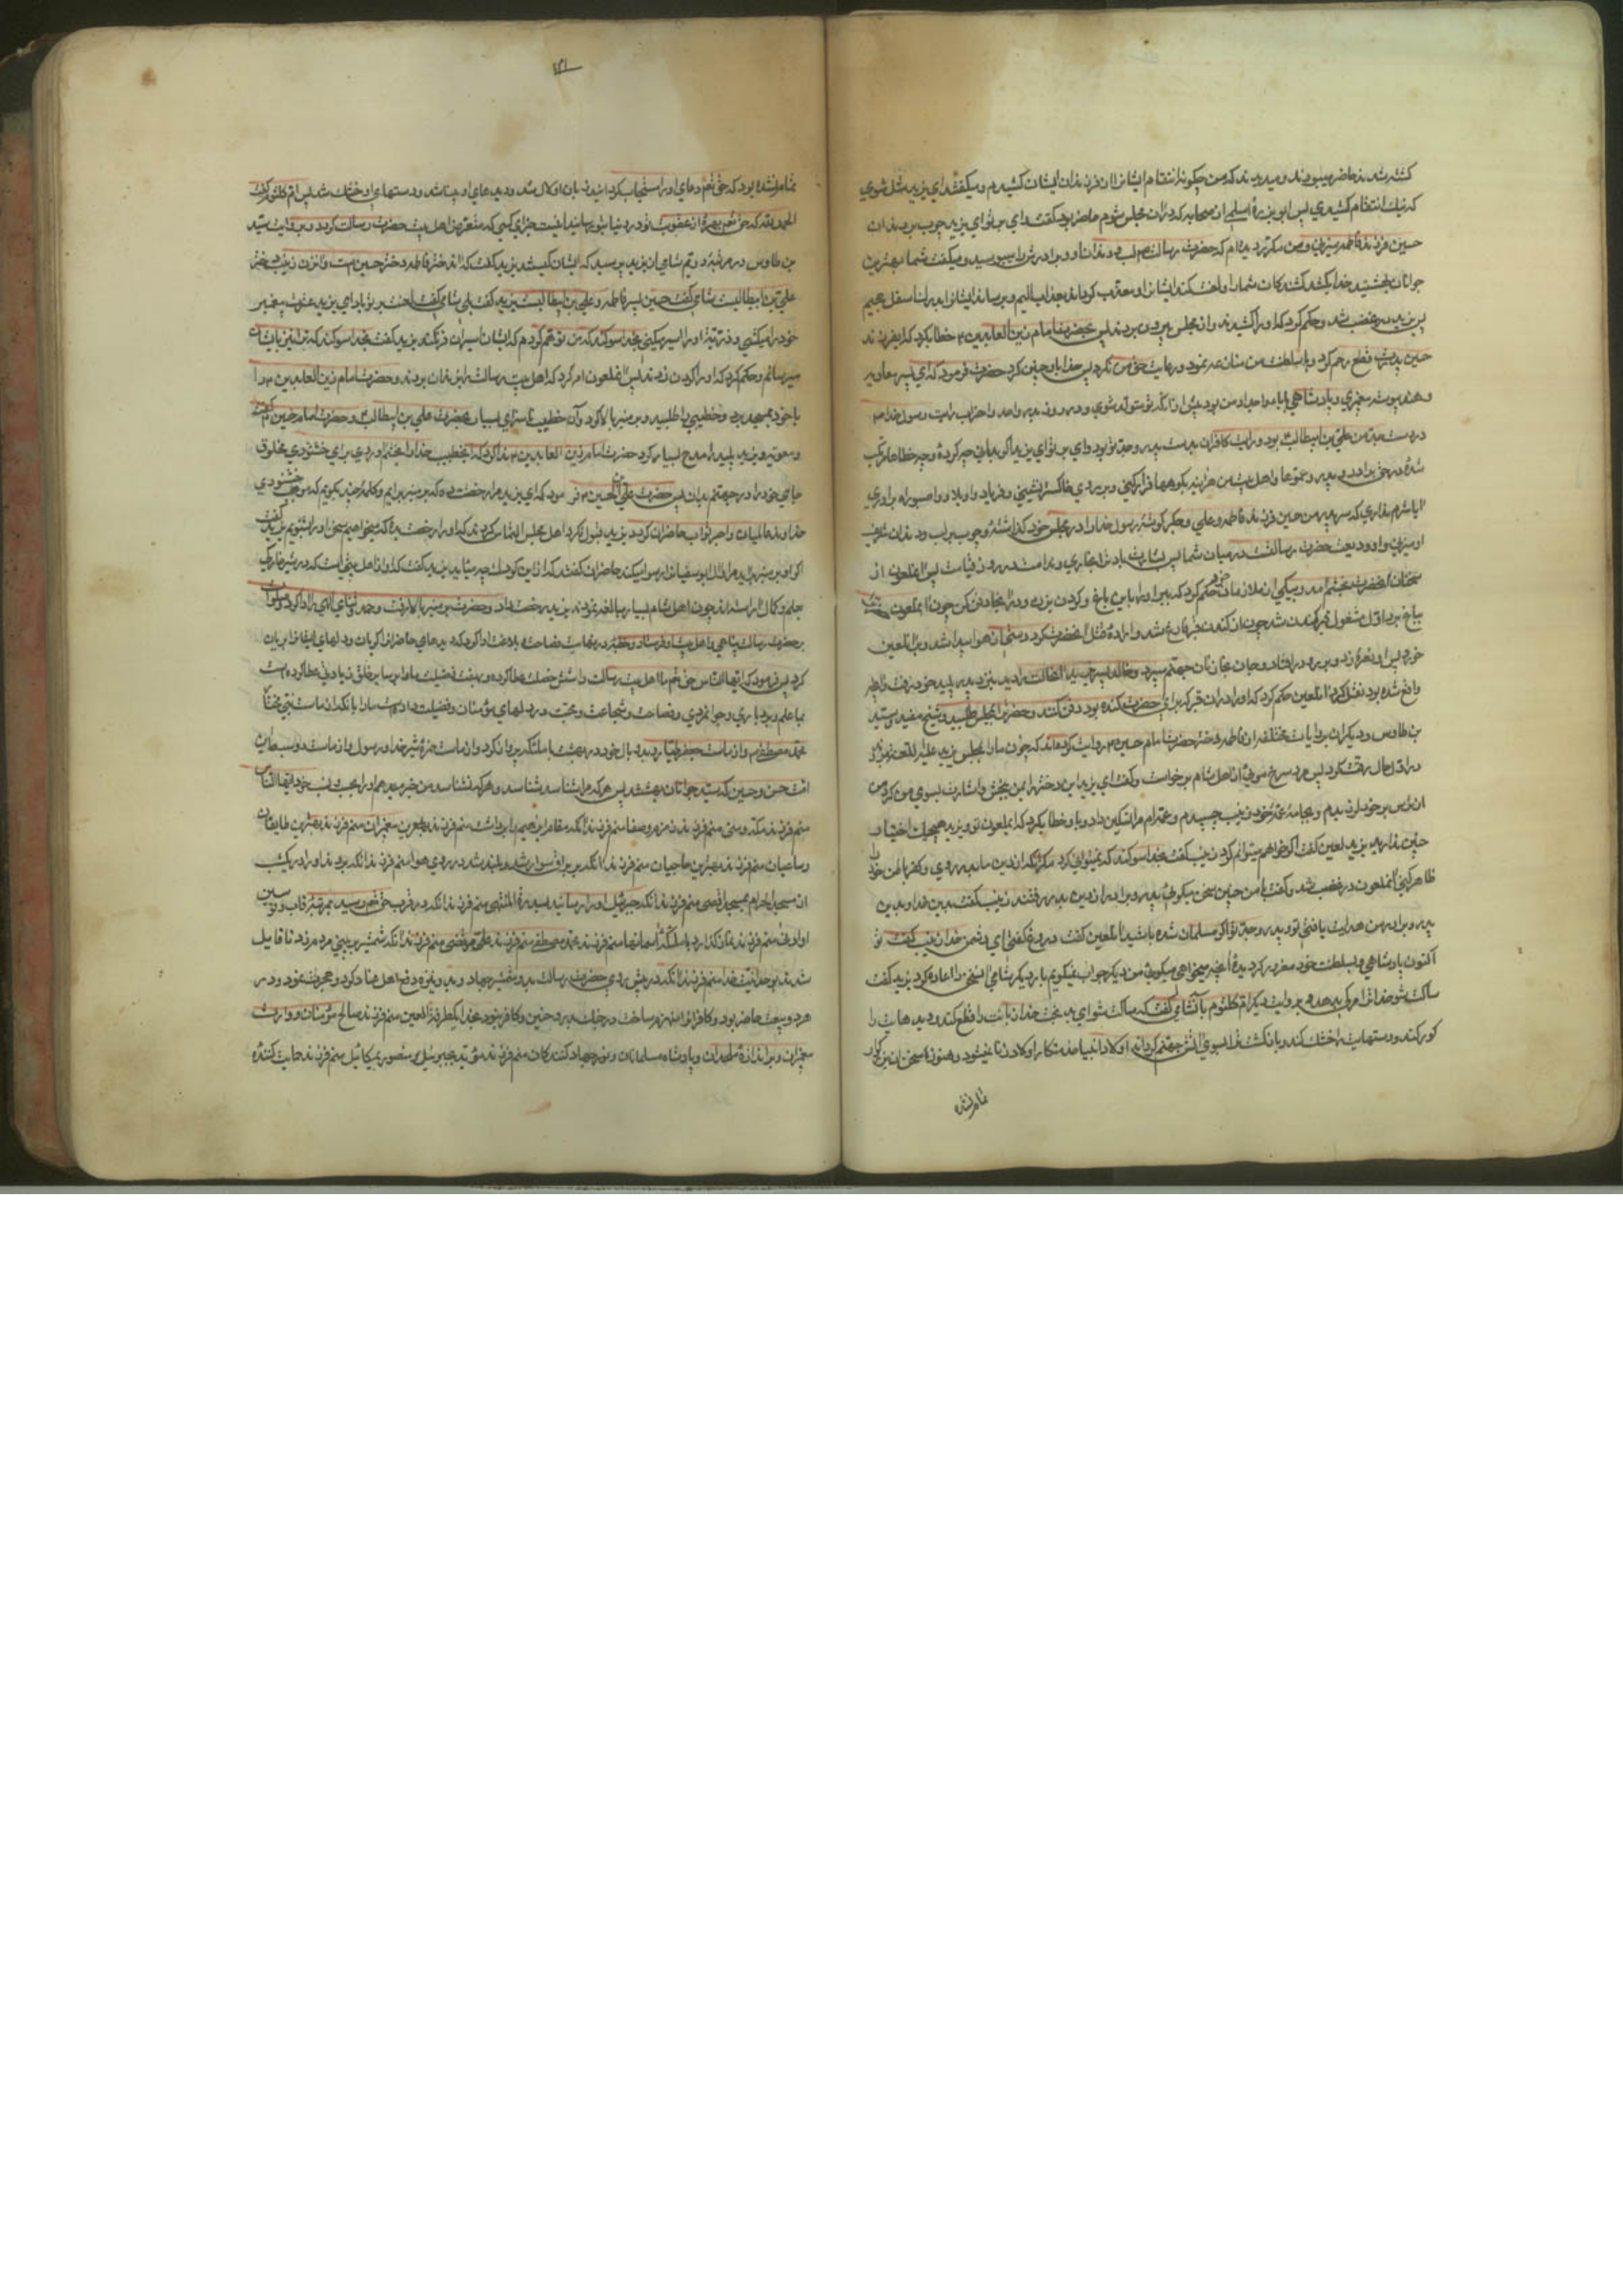 کشته شدند حاضر میبودند و میدیدند که من چگونه انتقام ایشانرا از فرزندان ایشان کشیدم و میگفتند ای یزید شل شوی
که نیک انتقام کشیدی پس ابو برزهٔ اسلمی از صحابه که در آن مجلس شوم حاضر بود گفت وای بر تو ای یزید چوب بر دندان
حسین فرزند فاطمه میزنی و من مکرر دیده‌ام که حضرت رسالت ص لب و دندان او و برادرش را میبوسید و میگفت شما بهترین
جوانان بهشتید خدا بکشد کشندگان شما را و لعنت کند ایشانرا و معذب گرداند بعذاب الیم و برساند ایشانرا بدرک اسفل جحیم
پس یزید در غضب شد و حکم کرد که او را کشیدند و از مجلس بیرون بردند پس بحضرت امام زین العابدین ع خطاب کرد که ای فرزند
حسین پدرت قطع رحم کرد و با سلطنت من منازعه نمود و رعایت حق من نکرد پس خدا با او چنین کرد حضرت فرمود که ای پسر معاویه
و هند پیوسته پیغمبری و پادشاهی با آبا و اجداد من بود پیش از آنکه تو متولد شوی و در روز بدر و احد و احزاب رایت رسول خدا ص
در دست جد من علی بن ابیطالب ع بود و رایت کافران بدست پدر و جد تو بود وای بر تو ای یزید اگر بدانی چه کردهٔ و چه خطاها مرتکب
شدهٔ در حق پدر و برادر و عموها و اهل بیت من هرآینه بکوهها فرار کنی و بر روی خاکستر نشینی و فریاد واویلا و واثبوراه برآوری
آیا شرم نداری که سر پدر من حسین فرزند فاطمه و علی و جگرگوشهٔ رسول خدا را در مجلس خود گذاشتهٔ و چوب بر لب و دندان شریف
او میزنی و او ودیعت حضرت رسالتست در میان شما پس بشارت باد ترا بخواری و ندامت در روز قیامت پس آن ملعون از
سخنان آنحضرت بخشم آمد و بیکی از ملازمان خود حکم کرد که ببر او را باین باغ و گردن بزن و در آنجا دفن کن چون آن ملعون
بباغ برد اول مشغول قبر کندن شد چون از کندن قبر فارغ شد و ارادهٔ قتل آنحضرت کرد دستی از هوا پیدا شد و بر آن لعین
خورد پس او نعره زد و بر رو در افتاد و جان بمالکان جهنم سپرد و خالد پسر یزید آن حالت را دید بنزد پدر پلید خود رفت و آنچه
واقع شده بود نقل کرد آن لعین حکم کرد که او را در آن قبر که برای حضرت کنده بود دفن کنند و حضرت را بمجلس طلبید و شیخ مفید و سید
بن طاوس و دیگران بروایات مختلفه از فاطمه دختر حضرت امام حسین ع روایت کرده‌اند که چون ما را بمجلس یزید علیه اللعنه بردند
در اول حال رقت کرد پس مرد سرخ مویی از اهل شام برخواست و گفت ای یزید این دختر را بمن ببخش و اشارت بسوی من کرد من
از ترس بر خود لرزیدم و بجامهٔ عمهٔ خود زینب چسبیدم و عمه‌ام مرا تسکین داد و باو خطاب کرد که ای ملعون تو و یزید هیچیک اختیار
چنین ندارید یزید لعین گفت اگر خواهم میتوانم کرد زینب گفت بخدا سوگند که نمیتوانی کرد مگر آنکه از دین ما بدر روی و کفر باطن خود را
ظاهر کنی آن ملعون در غضب شد و گفت با من چنین سخن میگویی پدر و برادر تو از دین بدر رفتند زینب گفت بدین خدا و دین
پدر و برادر من هدایت یافتی تو و پدر و جد تو اگر مسلمان شده باشید آن لعین گفت دروغ گفتی ای دشمن خدا زینب گفت تو
اکنون پادشاهی و بسلطنت خود مغرور گردیدهٔ آنچه میخواهی میگویی من دیگر جواب نمیگویم بار دیگر شامی آن سخن را اعاده کرد یزید گفت
ساکت شو خدا ترا مرگ بدهد و بروایت دیگر ام کلثوم بآن شامی گفت که ساکت شو ای بدبخت خدا زبانت را قطع کند و دیدهایت را
کور کند و دستهایت را خشک کند و بازگشت ترا بسوی آتش جهنم گرداند اولاد انبیا خدمتکار اولاد زنا نمیشود و هنوز سخن آن بزرگوار
تمام نشده
۱۴۱
تمام نشده بود که حق تعالی دعای او را مستجاب گردانید زبان او لال شد و دیدهای او نابینا شد و دستهای او خشک شد پس ام کلثوم گفت
الحمد لله که حق تعالی بهرهٔ از عقوبت تو در دنیا بتو رسانید اینست جزای کسی که متعرض اهل بیت حضرت رسالت گردد و بروایت سید
بن طاوس در مرتبهٔ دویم شامی از یزید پرسید که ایشان کیستند یزید گفت که آن دختر فاطمه دختر حسین است و آن زن زینب دختر
علی بن ابیطالبست شامی گفت حسین پسر فاطمه و علی بن ابیطالب یزید گفت بلی شامی گفت لعنت بر تو باد ای یزید عترت پیغمبر
خود را میکشی و ذریّهٔ او را اسیر میکنی بخدا سوگند که من توهم کردم که ایشان اسیران فرنگند یزید گفت بخدا سوگند که ترا نیز بایشان
میرسانم و حکم کرد که او را گردن زدند پس آن ملعون امر کرد که اهل بیت رسالت را بزندان بردند و حضرت امام زین العابدین ع را
با خود بمسجد برد و خطیبی را طلبید و بر منبر بالا کرد و آن خطیب ناسزای بسیار بحضرت علی بن ابیطالب ع و حضرت امام حسین ع گفت
و معویه و یزید پلید را مدح بسیار کرد حضرت امام زین العابدین ع ندا کرد که ای خطیب خدا را بخشم آوردی برای خشنودی مخلوق
جای خود را در جهنم بدان پس حضرت علی بن الحسین ع فرمود که ای یزید مرا رخصت ده که بر منبر برایم و کلمهٔ چند بگویم که موجب خشنودی
خداوند عالمیان و اجر ثواب حاضران گردد یزید قبول نکرد اهل مجلس التماس کردند که او را رخصت بده که میخواهیم سخن او را بشنویم یزید گفت
اگر او بر منبر برآید مرا و آل ابوسفیان را رسوا میکند حاضران گفتند که از این کودک چه میآید یزید گفت که او از اهل بیتی است که در شیرخوارگی
بعلم و کمال آراسته‌اند چون اهل شام بسیار مبالغه نمودند یزید رخصت داد و حضرت بر منبر بالا رفت و حمد و ثنای الهی را ادا کرد و صلوات
بر حضرت رسالت پناهی و اهل بیت او فرستاد و خطبهٔ در نهایت فصاحت و بلاغت ادا کرد که دیدهای حاضران را گریان و دلهای ایشانرا بریان
کرد پس فرمود که ایها الناس حق تعالی ما اهل بیت رسالت را شش خصلت عطا کرده و بهفت فضیلت ما را بر سایر خلق زیادتی عطا کرده است
بما علم و بردباری و جوانمردی و فصاحت و شجاعت و محبت در دلهای مؤمنان و فضیلت داده است ما را بآنکه از ماست نبی مختار
محمد مصطفی ص و از ماست جعفر طیار که با دو بال خود در بهشت با ملئکه پرواز کرد و از ماست حمزه شیر خدا و رسول و از ماست دو سبط این
امت حسن و حسین که سید جوانان بهشتند پس هر که مرا شناسد شناسد و هر که نشناسد من خبر میدهم او را بحسب و نسب خود ایها الناس
منم فرزند مکه و منی منم فرزند زمزم و صفا منم فرزند آنکه مقام ابراهیم را برداشت منم فرزند بهترین پیغمبران منم فرزند بهترین طایفان
و ساعیان منم فرزند بهترین حاجیان منم فرزند آنکه بر براق سوار شد و بلند شد در روی هوا منم فرزند آنکه بردند او را در یکشب
از مسجد الحرام بمسجد اقصی منم فرزند آنکه جبرئیل او را رسانید بسدرة المنتهی منم فرزند آنکه در قرب حق تعالی رسید بمرتبهٔ قاب قوسین
او ادنی منم فرزند آنکه نماز گذارد با ملئکهٔ آسمانها منم فرزند محمد مصطفی منم فرزند علی مرتضی منم فرزند آنکه شمشیر بر بینی مردم زد تا قایل
شدند بوحدانیت خدا منم فرزند آنکه در پیش روی حضرت رسالت بدو شمشیر جهاد کرد و بدو نیزه دفع اهل عناد کرد و دو هجرت نمود و در
هر دو بیعت حاضر بود و کافران را منهزم ساخت در جنگ بدر و حنین و کافر نبود بخدا یک طرفة العین منم فرزند صالح مؤمنان و وارث
پیغمبران و براندازهٔ ملحدان و پادشاه مسلمانان و نور جهاد کنندگان منم فرزند مؤید بجبرئیل و منصور بمیکائیل منم فرزند حمایت کنندهٔ